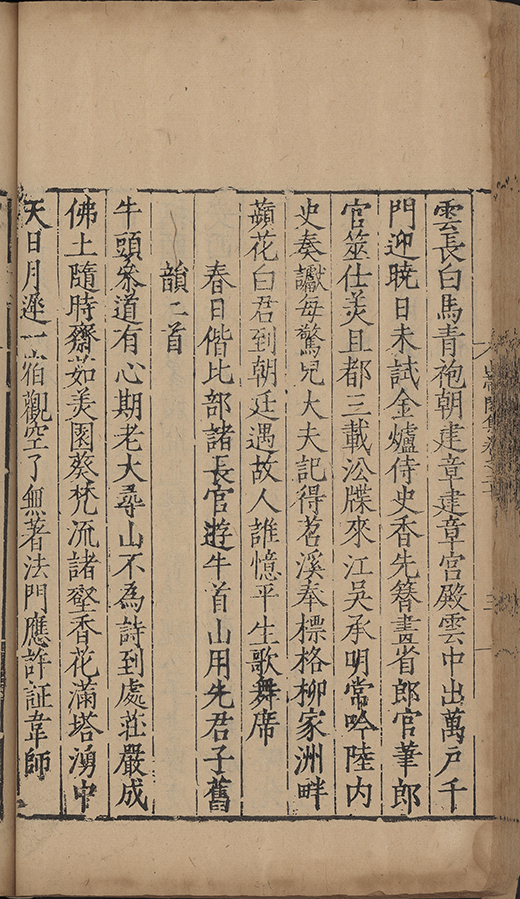 雲長白馬青袍朝建章建章宮殿雲中出萬戸千
門迎曉日未試金爐侍史香先簪畫省郎官筆郎
官筮仕羙且都三載訟牒來江吳承明常吟陸内
史奏讞每驚兒大夫記得苕溪奉標格柳家洲畔
蘋花白君到朝廷遇故人誰憶平生歌舞席
春日偕比部諸長官遊牛首山用先君子舊
韻二首
牛頭叅道有心期老大尋山不為詩到處莊嚴成
佛土隨時齋茹羙園葵梵流諸壑香花滿塔湧中
天日月遲一宿觀空了無著法門應許証韋師